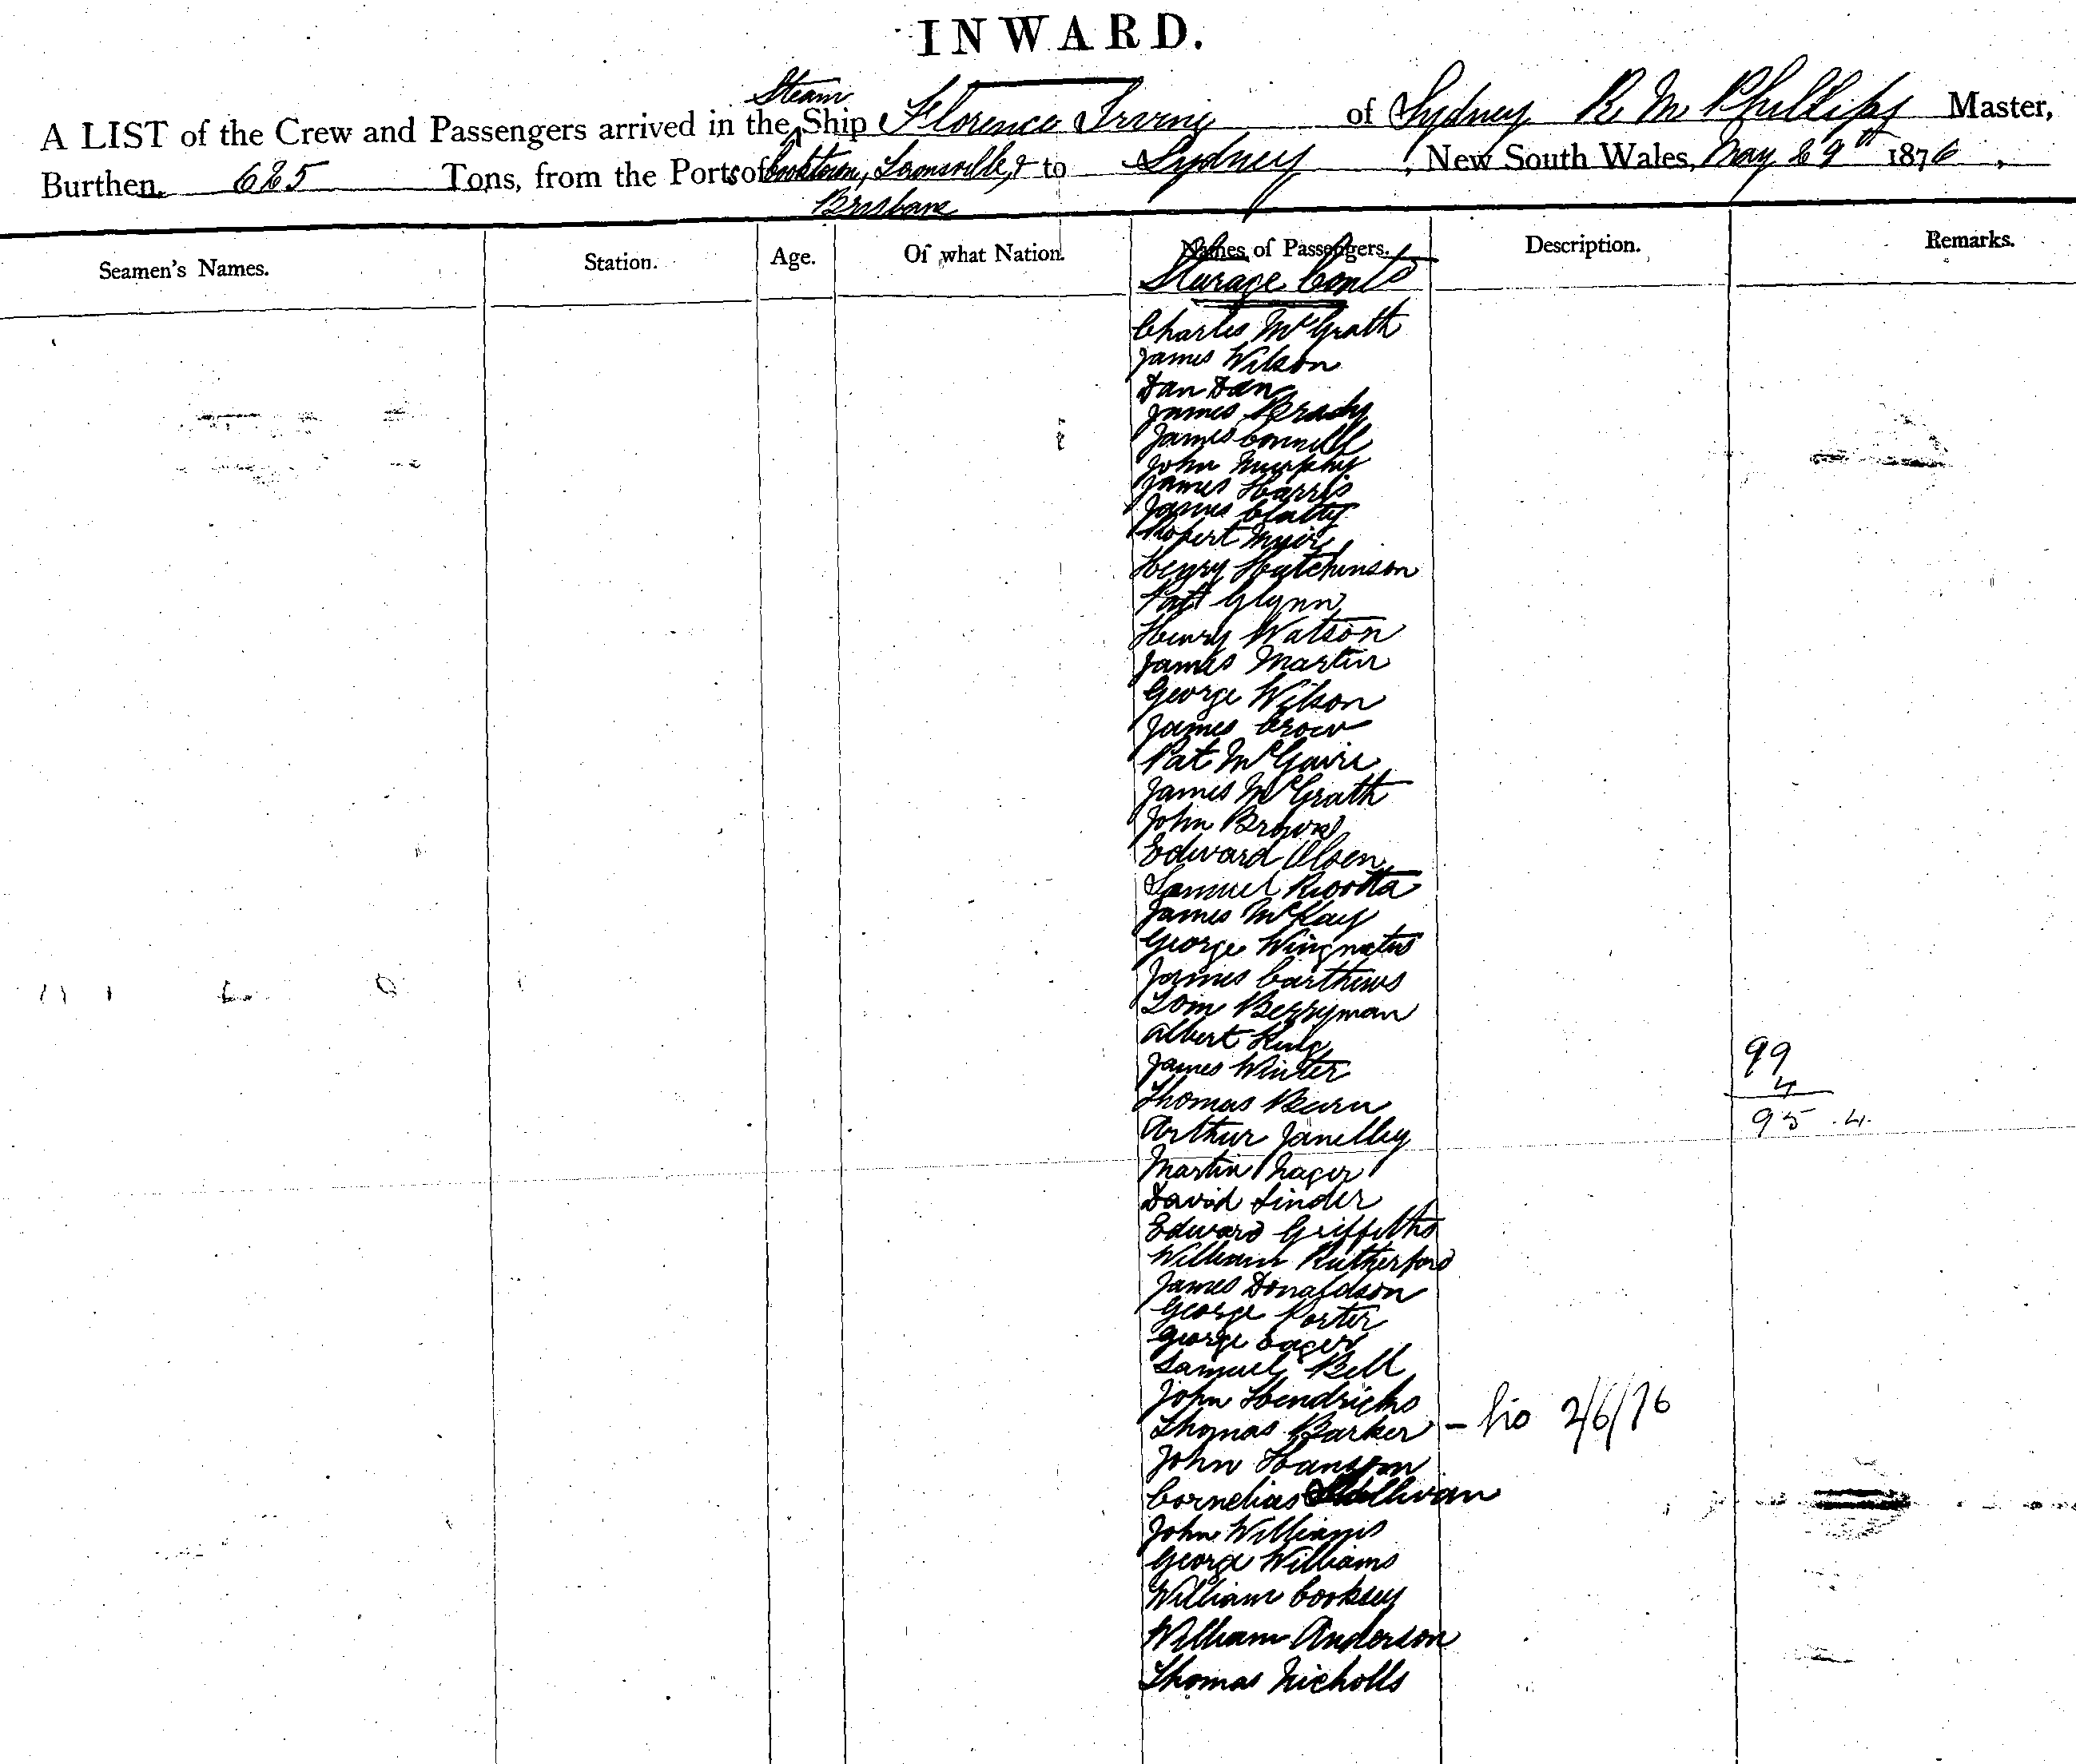 INWARD.
Steam
A LIST of the Crew and Passengers arrived in the Ship Florence Irving of Sydney R. M. Phillips Master,
Burthen 625 Tons, from the Ports of Cooktown, Townsville, & to Sydney, New South Wales, May 29th 1876.
Brisbane
Seamen's Names. Station. Age. Of what Nation. Names of Passengers. Description. Remarks.
Sturage Contd
Charles McGrath
James Wilson
Dan Dan
James Brady
James Connell
John Murphy
James Harris
James Clatty
Robert Muir
Henry Hutchinson
Pat Glynn
Henry Watson
James Martin
George Wilson
James Crow
Pat McGuire
James McGrath
John Brown
Edward Olsen
Samuel
James McKay
George
James Carthews
Tom Berryman
Albert King
James Winter
99
4
Thomas Bearn
95 . 4.
Arthur
Martin
David Linder
Edward Griffiths
William Rutherford
James Donaldson
George Porter
George Eager
Samuel Bell
John Hendricks
Thomas Barker – 2/6/76
John Hansom
Cornelius Sullivan
John Williams
George Williams
William Cooksey
William Anderson
Thomas Nicholls